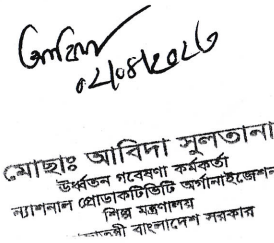 আবিদা
০২/০৪/২০২৩
মোছাঃ আবিদা সুলতানা
উর্ধ্বতন গবেষণা কর্মকর্তা
ন্যাশনাল প্রোডাকটিভিটি অর্গানাইজেশন
শিল্প মন্ত্রণালয়
বাংলাদেশ সরকার